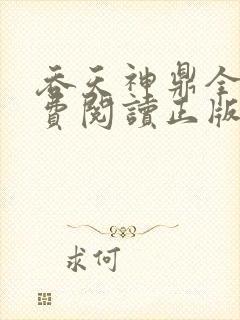 吞天神鼎全
費閱讀正版
求何